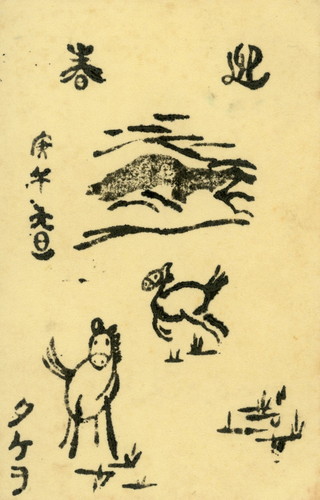 迎春
庚午元旦
タケヲ